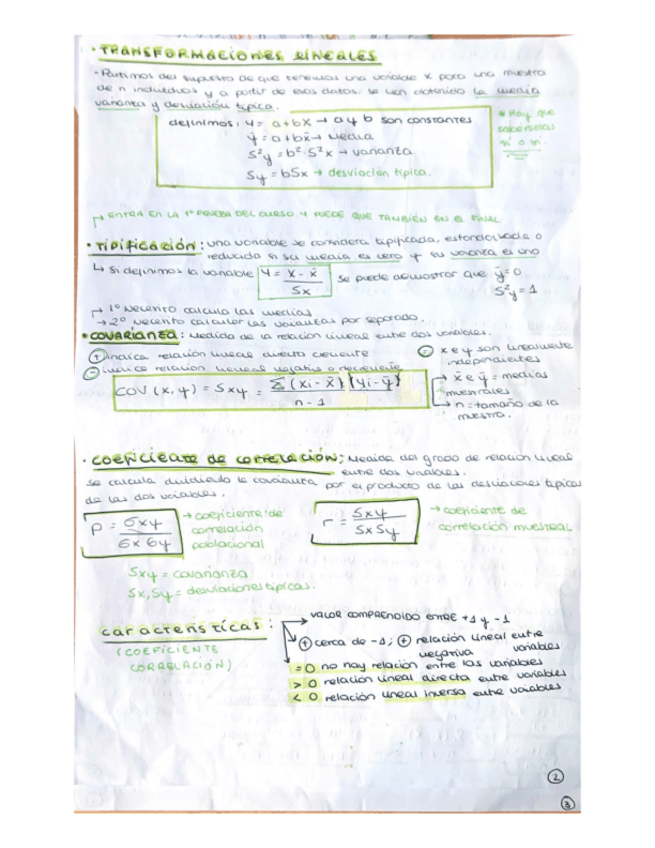 · TRANSFORMACIONES LINEALES
· Partimos del supuesto de que tenemos una variable X para una muestra
de n individuos y a partir de esos datos. se han obtenido la media
varianza y desviación típica.
definimos: Y = a+bX → a y b son constantes
ȳ = a+bx̄ → Media
S²y = b²·S²x → varianza
Sy = bSx → desviación típica.
* Hay que
saberselas
sí o sí.
↳ ENTRA EN LA 1ª PRUEBA DEL CURSO Y PUEDE QUE TAMBIÉN EN EL FINAL
· TIPIFICACIÓN: una variable se considera tipificada, estandarizada o
reducida si su media es cero y su varianza es uno
↳ Si definimos la variable Y = X - x̄ / Sx se puede demostrar que ȳ=0
S²y = 1
→ 1º Necesito calcular las medias
→ 2º Necesito calcular las varianzas por separado.
· COVARIANZA: Medida de la relación lineal entre dos variables.
(+) indica relación lineal directa creciente
(-) indica relación lineal negativa o decreciente
x e y son linealmente
independientes
COV (x, y) = Sxy = Σ (xi - x̄) (yi - ȳ) / n - 1
→ x̄ e ȳ = medias
muestrales
→ n = tamaño de la
muestra.
· COEFICIENTE DE CORRELACIÓN: Medida del grado de relación lineal
entre dos variables.
Se calcula dividiendo la covarianza por el producto de las desviaciones típicas
de las dos variables.
ρ = σxy / σx σy → coeficiente de
correlación
poblacional
r = Sxy / SxSy → coeficiente de
correlación muestral
Sxy = covarianza
Sx, Sy = desviaciones típicas.
características:
(COEFICIENTE
CORRELACIÓN)
VALOR COMPRENDIDO ENTRE +1 y -1
(+) cerca de -1; (+) relación lineal entre
negativa variables
= 0 no hay relación entre las variables
> 0 relación lineal directa entre variables
< 0 relación lineal inversa entre variables
2
3